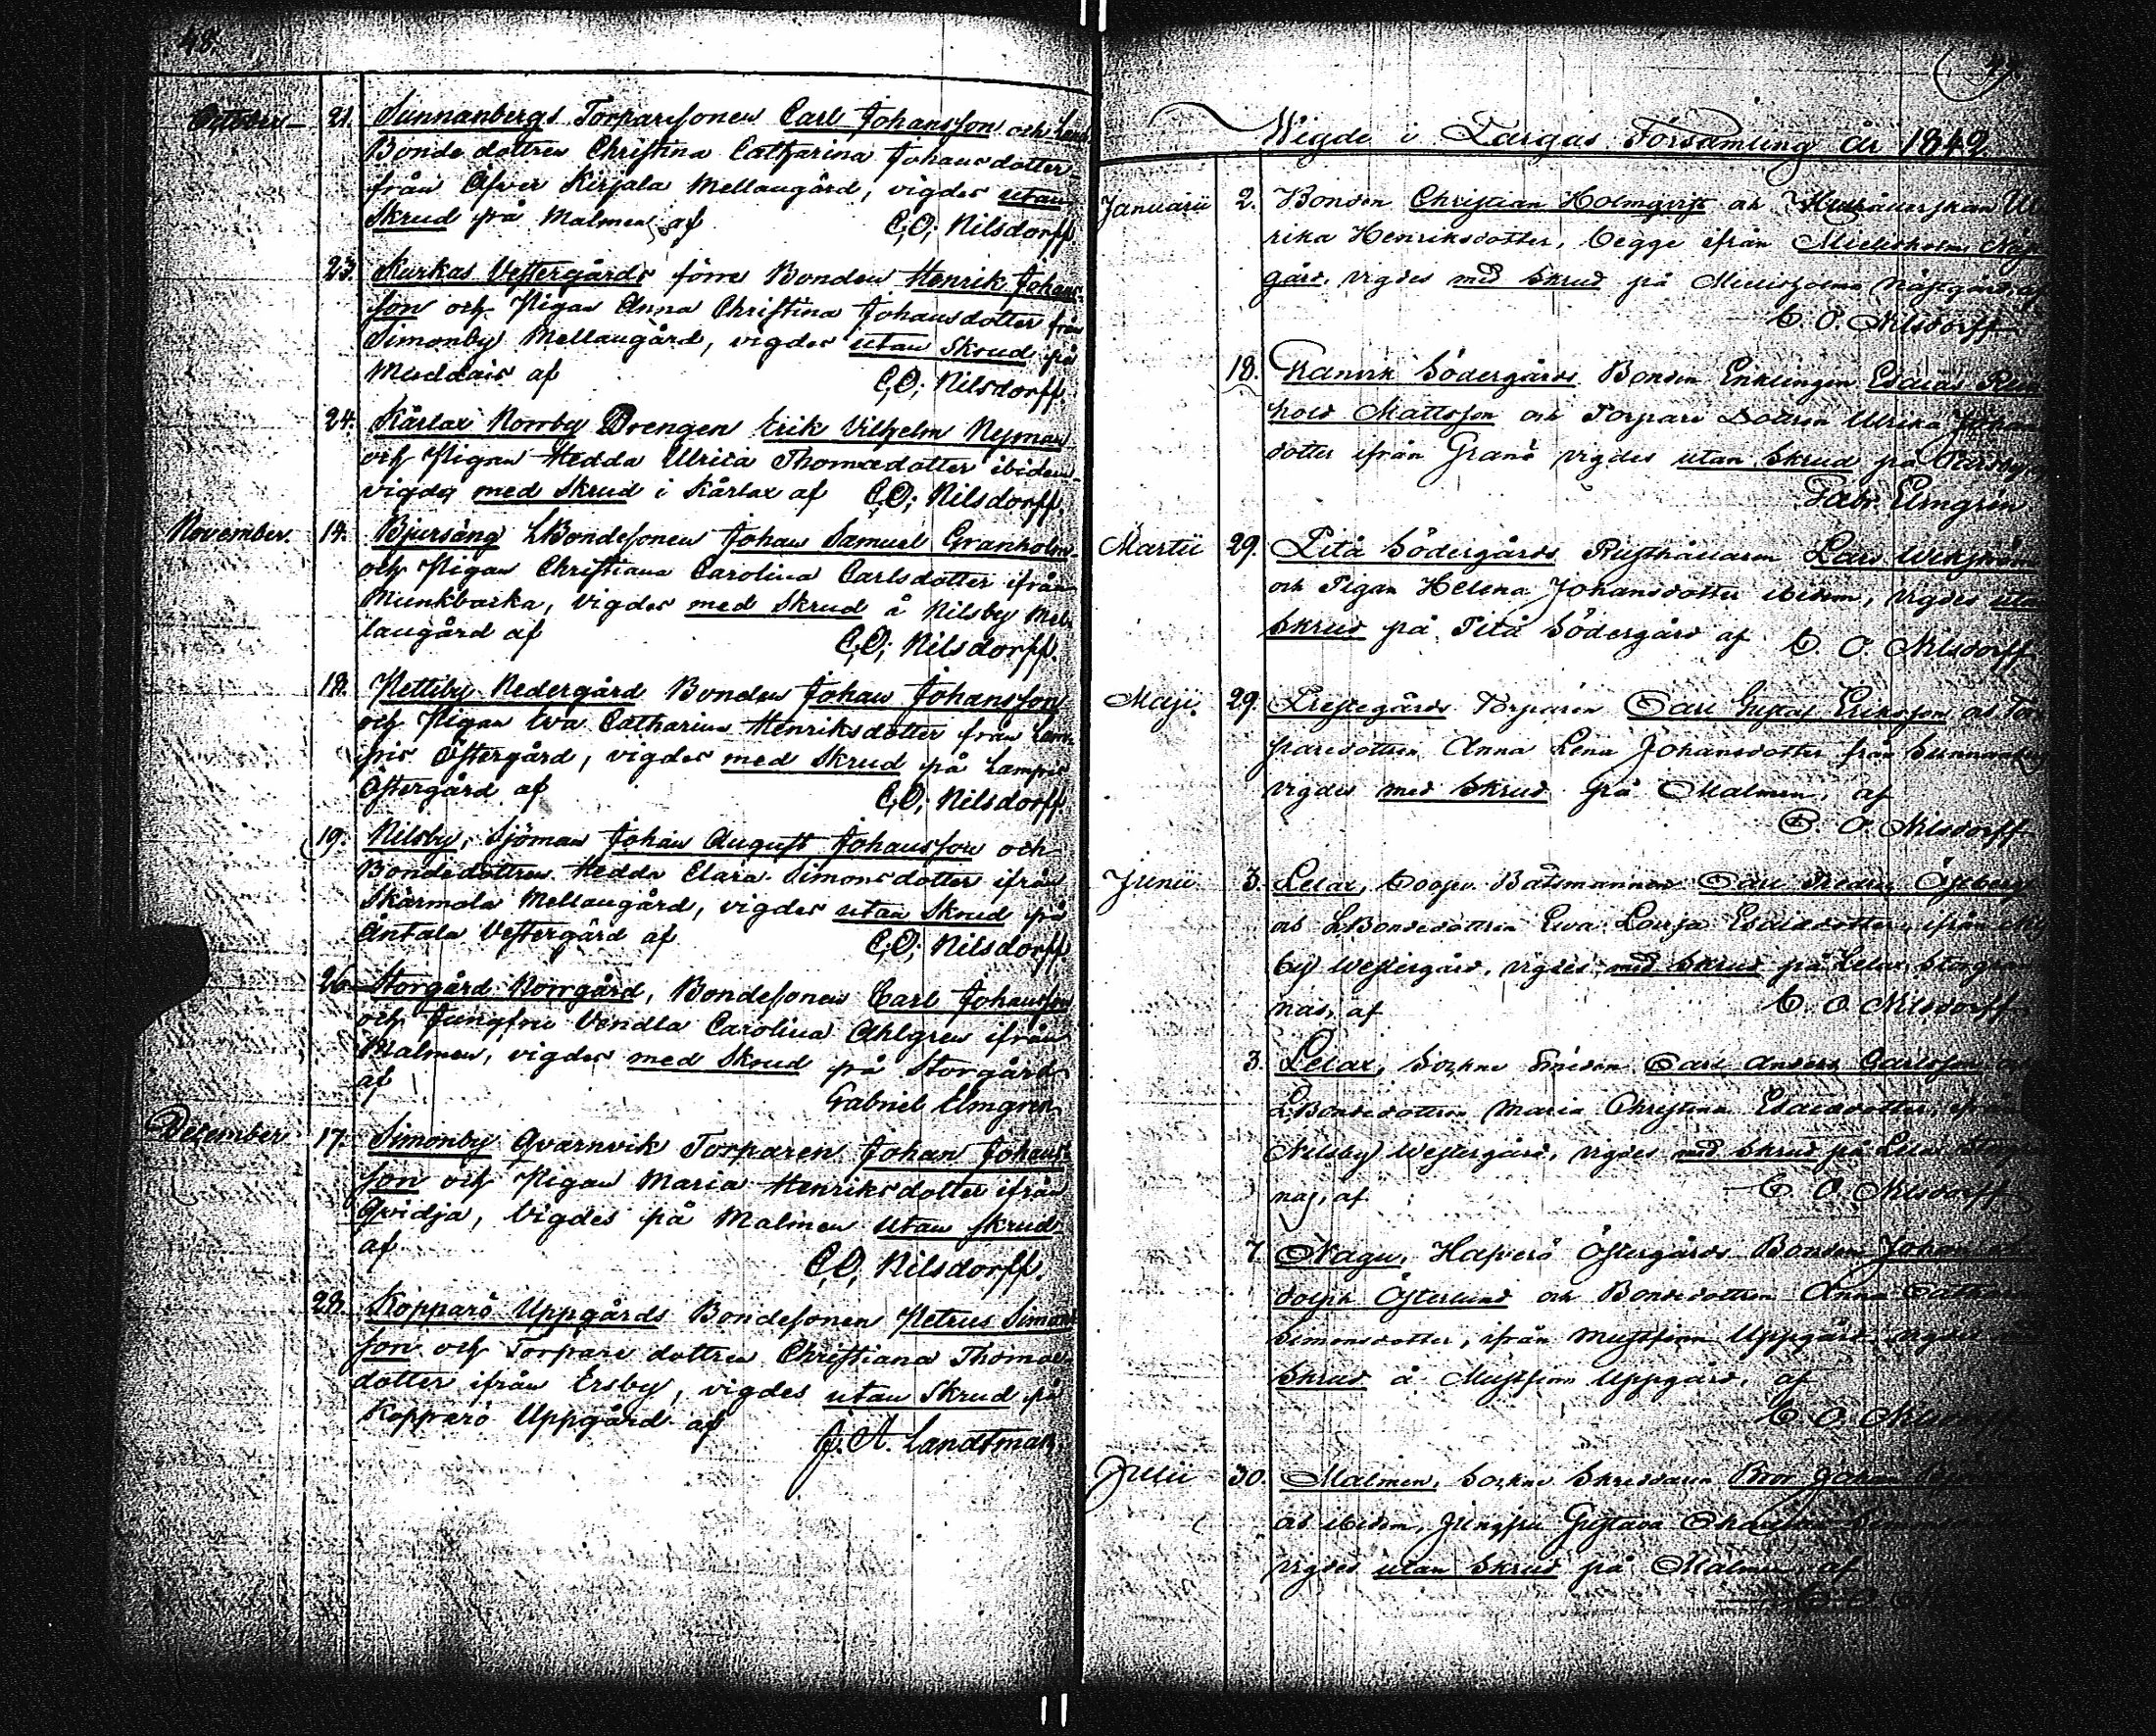 48.
October 21. Sunnanbergs Torparsonen Carl Johansson och
Bonde dottren Christina Catharina Johansdotter
från Ofver Kirjala Mellangård, vigdes utan
Skrud på Malmen af C,O; Nilsdorff.
23. Kurkas Vestergårds förre Bonden Henrik Johans
son och Pigan Anna Christina Johansdotter från
Simonby Mellangård, vigdes utan Skrud på
Muddais af C,O; Nilsdorff.
24. Kårlax Norrby Drengen Erik Vilhelm Nyman
och Pigan Hedda Ulrica Thomasdotter ibidem
vigdes med Skrud i Kårlax af C,O; Nilsdorff.
November. Bjursäng LBondesonen Johan Samuel Granholm
och Pigan Christiana Carolina Carlsdotter ifrån
Munkbacka, Vigdes med Skrud å Nilsby Mel
langård af C,O; Nilsdorff.
18. Pettiby Nedergård Bonden Johan Johansson
och Pigan Eva Catharina Henriksdotter från Lam-
pis Östergård, vigdes med Skrud på Lampis
Östergård af C,O; Nilsdorff.
19. Nilsby, Sjöman Johan August Johansson och
Bondedottren Hedda Clara Simonsdotter ifrån
Skärmola Mellangård, vigdes utan Skrud på
Äntala Vestergård af C,O; Nilsdorff
26. Storgård Norrgård, Bondesonen Carl Johansson
och Jungfru Vendla Carolina Ahlgren ifrån
Malmen, vigdes med Skrud på Storgård
af
Gabriel Elmgren
December 17. Simonby Qvarnvik Torparen Johan Johans-
son och Pigan Maria Henriksdotter ifrån
Qvidja, Vigdes på Malmen utan skrud
af
C,O; Nilsdorff.
28. Kopparö Uppgårds Bondesonen Petrus Simons
son och Torpare dottren Christiana Thomas
dotter ifrån Ersby, vigdes utan Skrud på
Kopparö Uppgård af
J. A. Landtman.
Wigde i Pargas Församling år 1849
Januarii 2. Bonden Christian Holmqvist och
rika Henriksdotter, begge ifrån
gård, vigdes med Skrud på
C. O. Nilsdorff
18. Södergårds Bonden Enklingen Esaias
hold Mattsson och Torpare Dottren Ulrika
dotter ifrån Granö vigdes utan Skrud på
Gabr. Elmgrén
Martii 29. Södergårds Rusthållaren Lars
och Pigan Helena Johansdotter ibidem, vigdes utan
Skrud på Södergård af C. O. Nilsdorff
Maji. 29. Prestegårds Torparen Carl Gustaf Eriksson och Tor
paredottren Anna Lena Johansdotter från
vigdes med Skrud på Malmen, af
C. O. Nilsdorff
Junii 3. Lelax, Båtsmannen Carl Fredric Östberg
och LBondedottren Eva Lovisa Esaiædotter, ifrån
by Westergård, vigdes med Skrud på Lelax
nas, af C. O. Nilsdorff
3. Lelax, Sockne Smeden Carl Anders Carlsson
LBondedottren Maria Christina Esaiædotter, ifrån
Nilsby Westergård, vigdes med Skrud på Lelax
nas, af C. O. Nilsdorff
7. Nagu, Haverö Östergårds Bonden Johan
dolph Österlund och Bondedottren Anna
Simonsdotter, ifrån Mustfinn Uppgård, vigdes
Skrud å Mustfinn Uppgård, af
C. O.
Julii 30. Malmen, Sockne Skräddaren Johan
och ibidem, Jungfru Gustava
vigdes utan Skrud på Malmen af